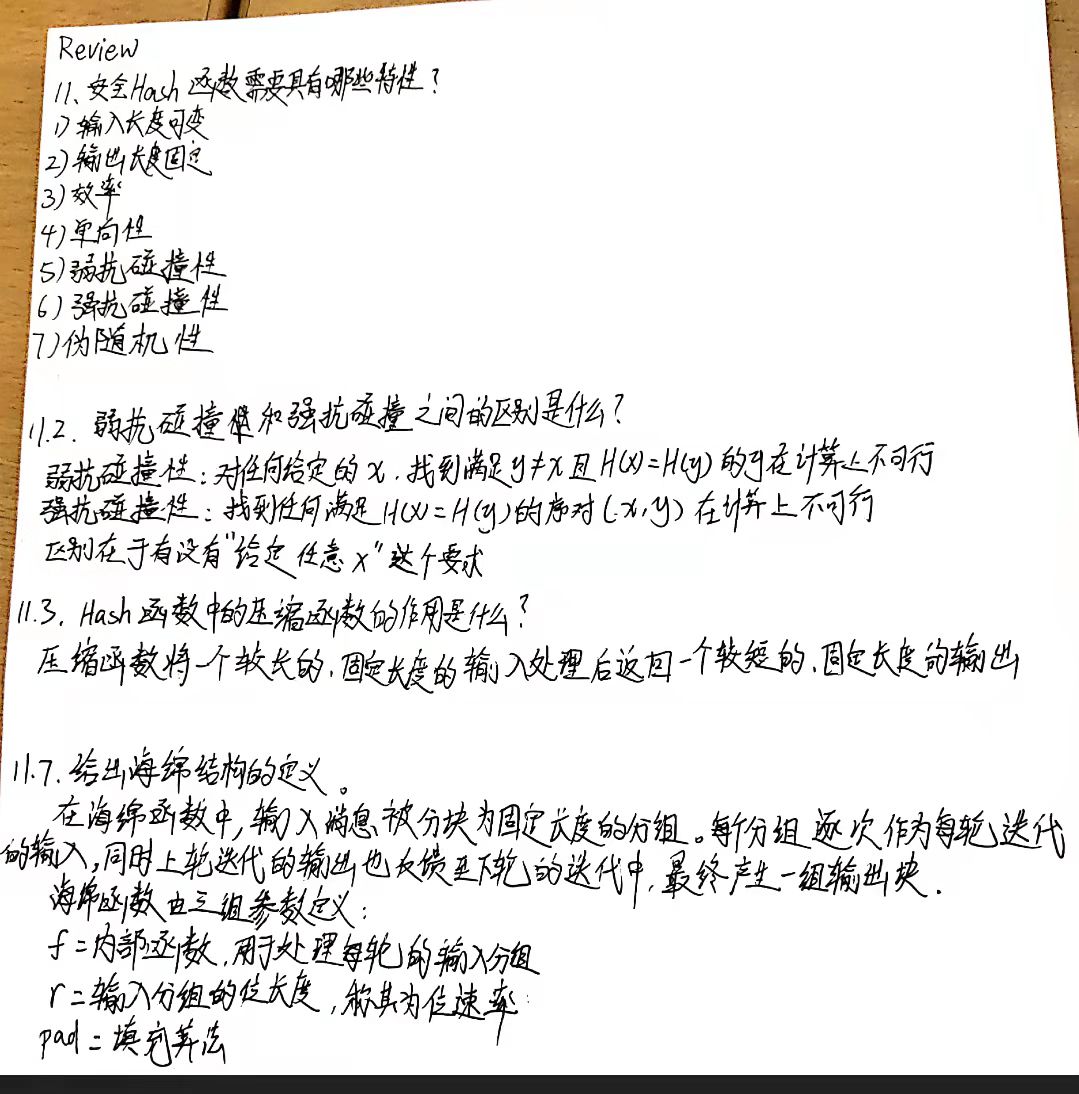 Review
11、安全Hash函数需要具有哪些特性？
1) 输入长度可变
2) 输出长度固定
3) 效率
4) 单向性
5) 弱抗碰撞性
6) 强抗碰撞性
7) 伪随机性
11.2. 弱抗碰撞性和强抗碰撞之间的区别是什么？
弱抗碰撞性：对任何给定的x，找到满足y≠x且H(x)=H(y)的y在计算上不可行
强抗碰撞性：找到任何满足H(x)=H(y)的序对(x,y)在计算上不可行
区别在于有没有"给定任意x"这个要求
11.3. Hash函数中的压缩函数的作用是什么？
压缩函数将一个较长的、固定长度的输入处理后返回一个较短的、固定长度的输出
11.7. 给出海绵结构的定义。
在海绵函数中，输入消息被分块为固定长度的分组。每个分组逐次作为每轮迭代
的输入，同时上轮迭代的输出也反馈至下轮的迭代中，最终产生一组输出块.
海绵函数由三组参数定义：
f = 内部函数，用于处理每轮的输入分组
r = 输入分组的位长度，称其为位速率
pad = 填充算法